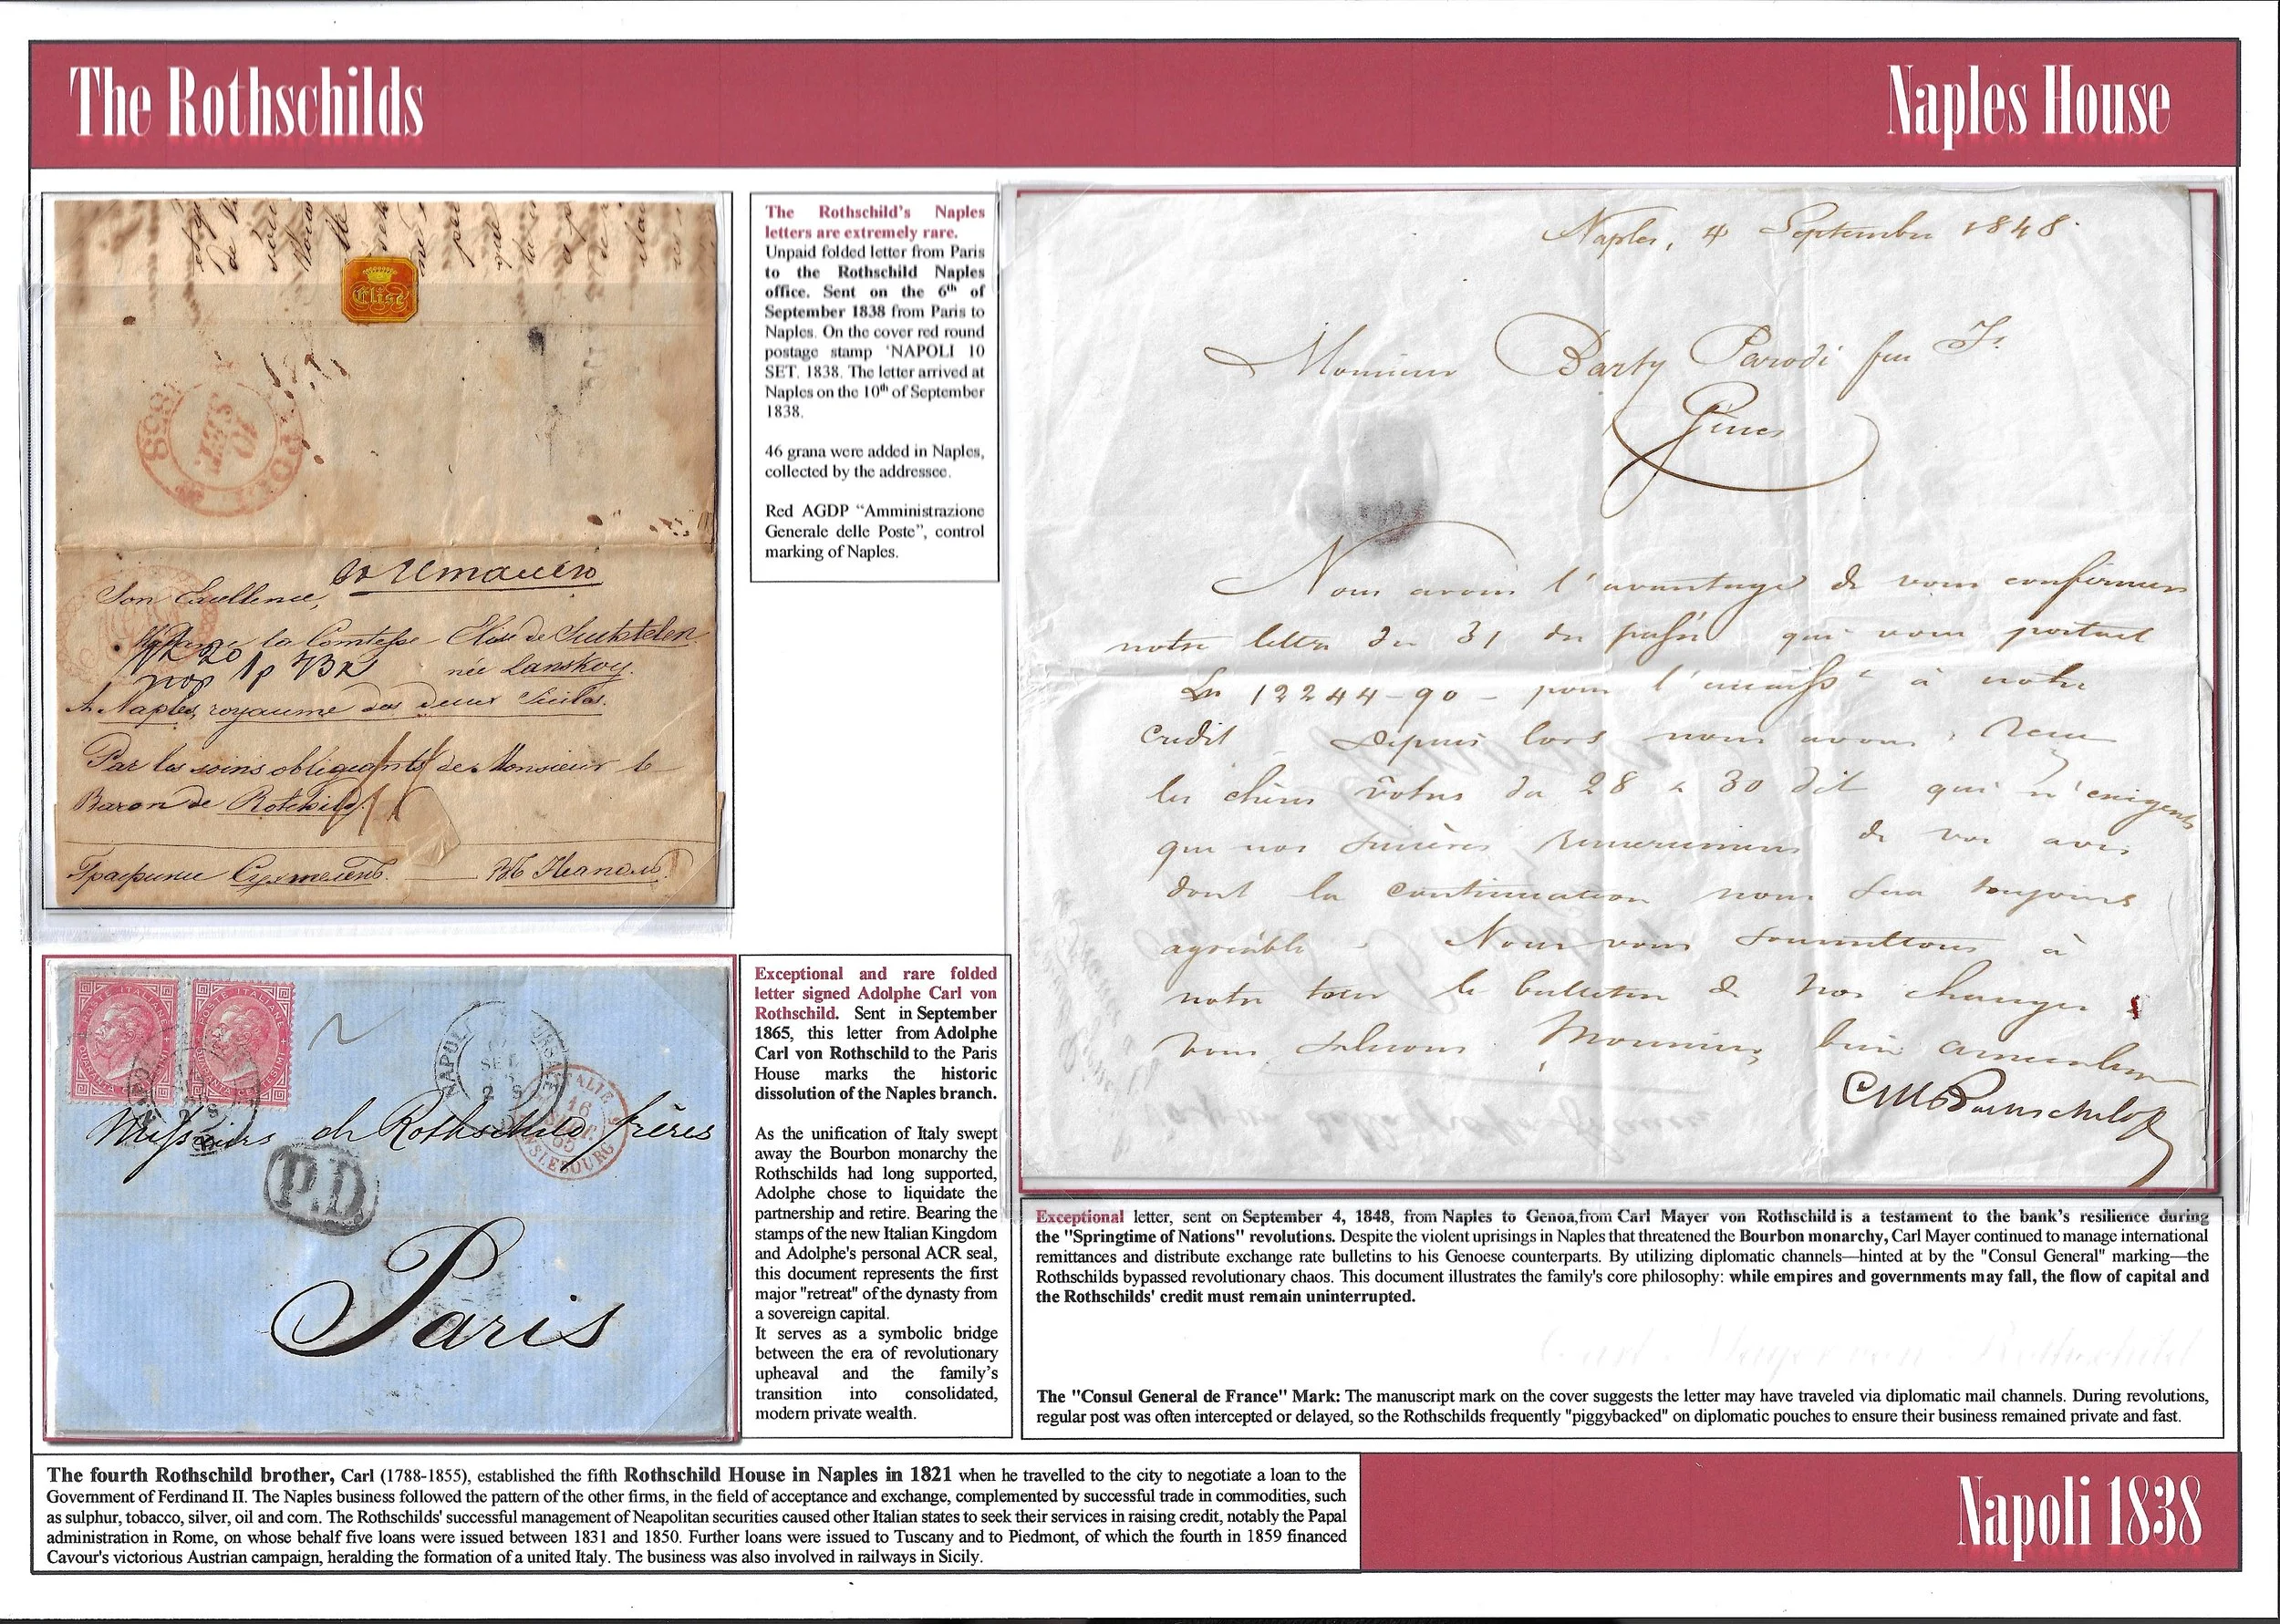 The Rothschilds
Naples House
Elise
NAPOLI
1838
10
SET.
Son Excellence,
la Comtesse Elise de Suchtelen
née Lanskoy.
A Naples, royaume des deux Siciles.
Par les soins obligeants de Monsieur le
Baron de Rotchild.
Графинѣ Сухтеленъ. — Въ Неаполь.
The Rothschild's Naples
letters are extremely rare.
Unpaid folded letter from Paris
to the Rothschild Naples
office. Sent on the 6th of
September 1838 from Paris to
Naples. On the cover red round
postage stamp 'NAPOLI 10
SET. 1838. The letter arrived at
Naples on the 10th of September
1838.
46 grana were added in Naples,
collected by the addressee.
Red AGDP “Amministrazione
Generale delle Poste”, control
marking of Naples.
Naples, 4 September 1848.
Monsieur Barty Parodi feu
Gênes
Nous avons l'avantage de vous confirmer
notre lettre du 31 du passé qui vous portait
Ln 12244-90 - pour l' à notre
credit Depuis lors nous avons reçu
les chères vôtres du 28 & 30 dit qui n'exigent
que nos sincères remercimens de vos avis
dont la continuation nous sera toujours
agréable. Nous vous soumettons à
notre tour le bulletin de nos changes &
vous saluons, Monsieur, bien
CM Rothschild
POSTE ITALIANE
POSTE ITALIANE
QUARANTA CENTESIMI
NAPOLI
SET
2 S
ITALIE
16
SEPT.
65
Messieurs de Rothschild frères
P.D
Paris
Exceptional and rare folded
letter signed Adolphe Carl von
Rothschild. Sent in September
1865, this letter from Adolphe
Carl von Rothschild to the Paris
House marks the historic
dissolution of the Naples branch.
As the unification of Italy swept
away the Bourbon monarchy the
Rothschilds had long supported,
Adolphe chose to liquidate the
partnership and retire. Bearing the
stamps of the new Italian Kingdom
and Adolphe's personal ACR seal,
this document represents the first
major "retreat" of the dynasty from
a sovereign capital.
It serves as a symbolic bridge
between the era of revolutionary
upheaval and the family’s
transition into consolidated,
modern private wealth.
Exceptional letter, sent on September 4, 1848, from Naples to Genoa,from Carl Mayer von Rothschild is a testament to the bank’s resilience during
the "Springtime of Nations" revolutions. Despite the violent uprisings in Naples that threatened the Bourbon monarchy, Carl Mayer continued to manage international
remittances and distribute exchange rate bulletins to his Genoese counterparts. By utilizing diplomatic channels—hinted at by the "Consul General" marking—the
Rothschilds bypassed revolutionary chaos. This document illustrates the family's core philosophy: while empires and governments may fall, the flow of capital and
the Rothschilds' credit must remain uninterrupted.
Carl Mayer von Rothschild
The "Consul General de France" Mark: The manuscript mark on the cover suggests the letter may have traveled via diplomatic mail channels. During revolutions,
regular post was often intercepted or delayed, so the Rothschilds frequently "piggybacked" on diplomatic pouches to ensure their business remained private and fast.
The fourth Rothschild brother, Carl (1788-1855), established the fifth Rothschild House in Naples in 1821 when he travelled to the city to negotiate a loan to the
Government of Ferdinand II. The Naples business followed the pattern of the other firms, in the field of acceptance and exchange, complemented by successful trade in commodities, such
as sulphur, tobacco, silver, oil and corn. The Rothschilds' successful management of Neapolitan securities caused other Italian states to seek their services in raising credit, notably the Papal
administration in Rome, on whose behalf five loans were issued between 1831 and 1850. Further loans were issued to Tuscany and to Piedmont, of which the fourth in 1859 financed
Cavour's victorious Austrian campaign, heralding the formation of a united Italy. The business was also involved in railways in Sicily.
Napoli 1838